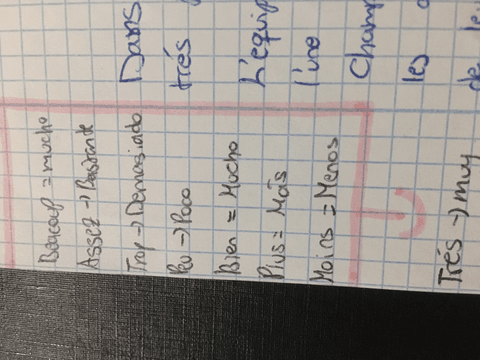 Beaucoup = mucho
Assez → Bastante
Trop → Demasiado
Peu → Poco
Bien = Mucho
Plus = Más
Moins = Menos
Trés → muy
Dans
trés
L'équip
l'une
Champ
les
de